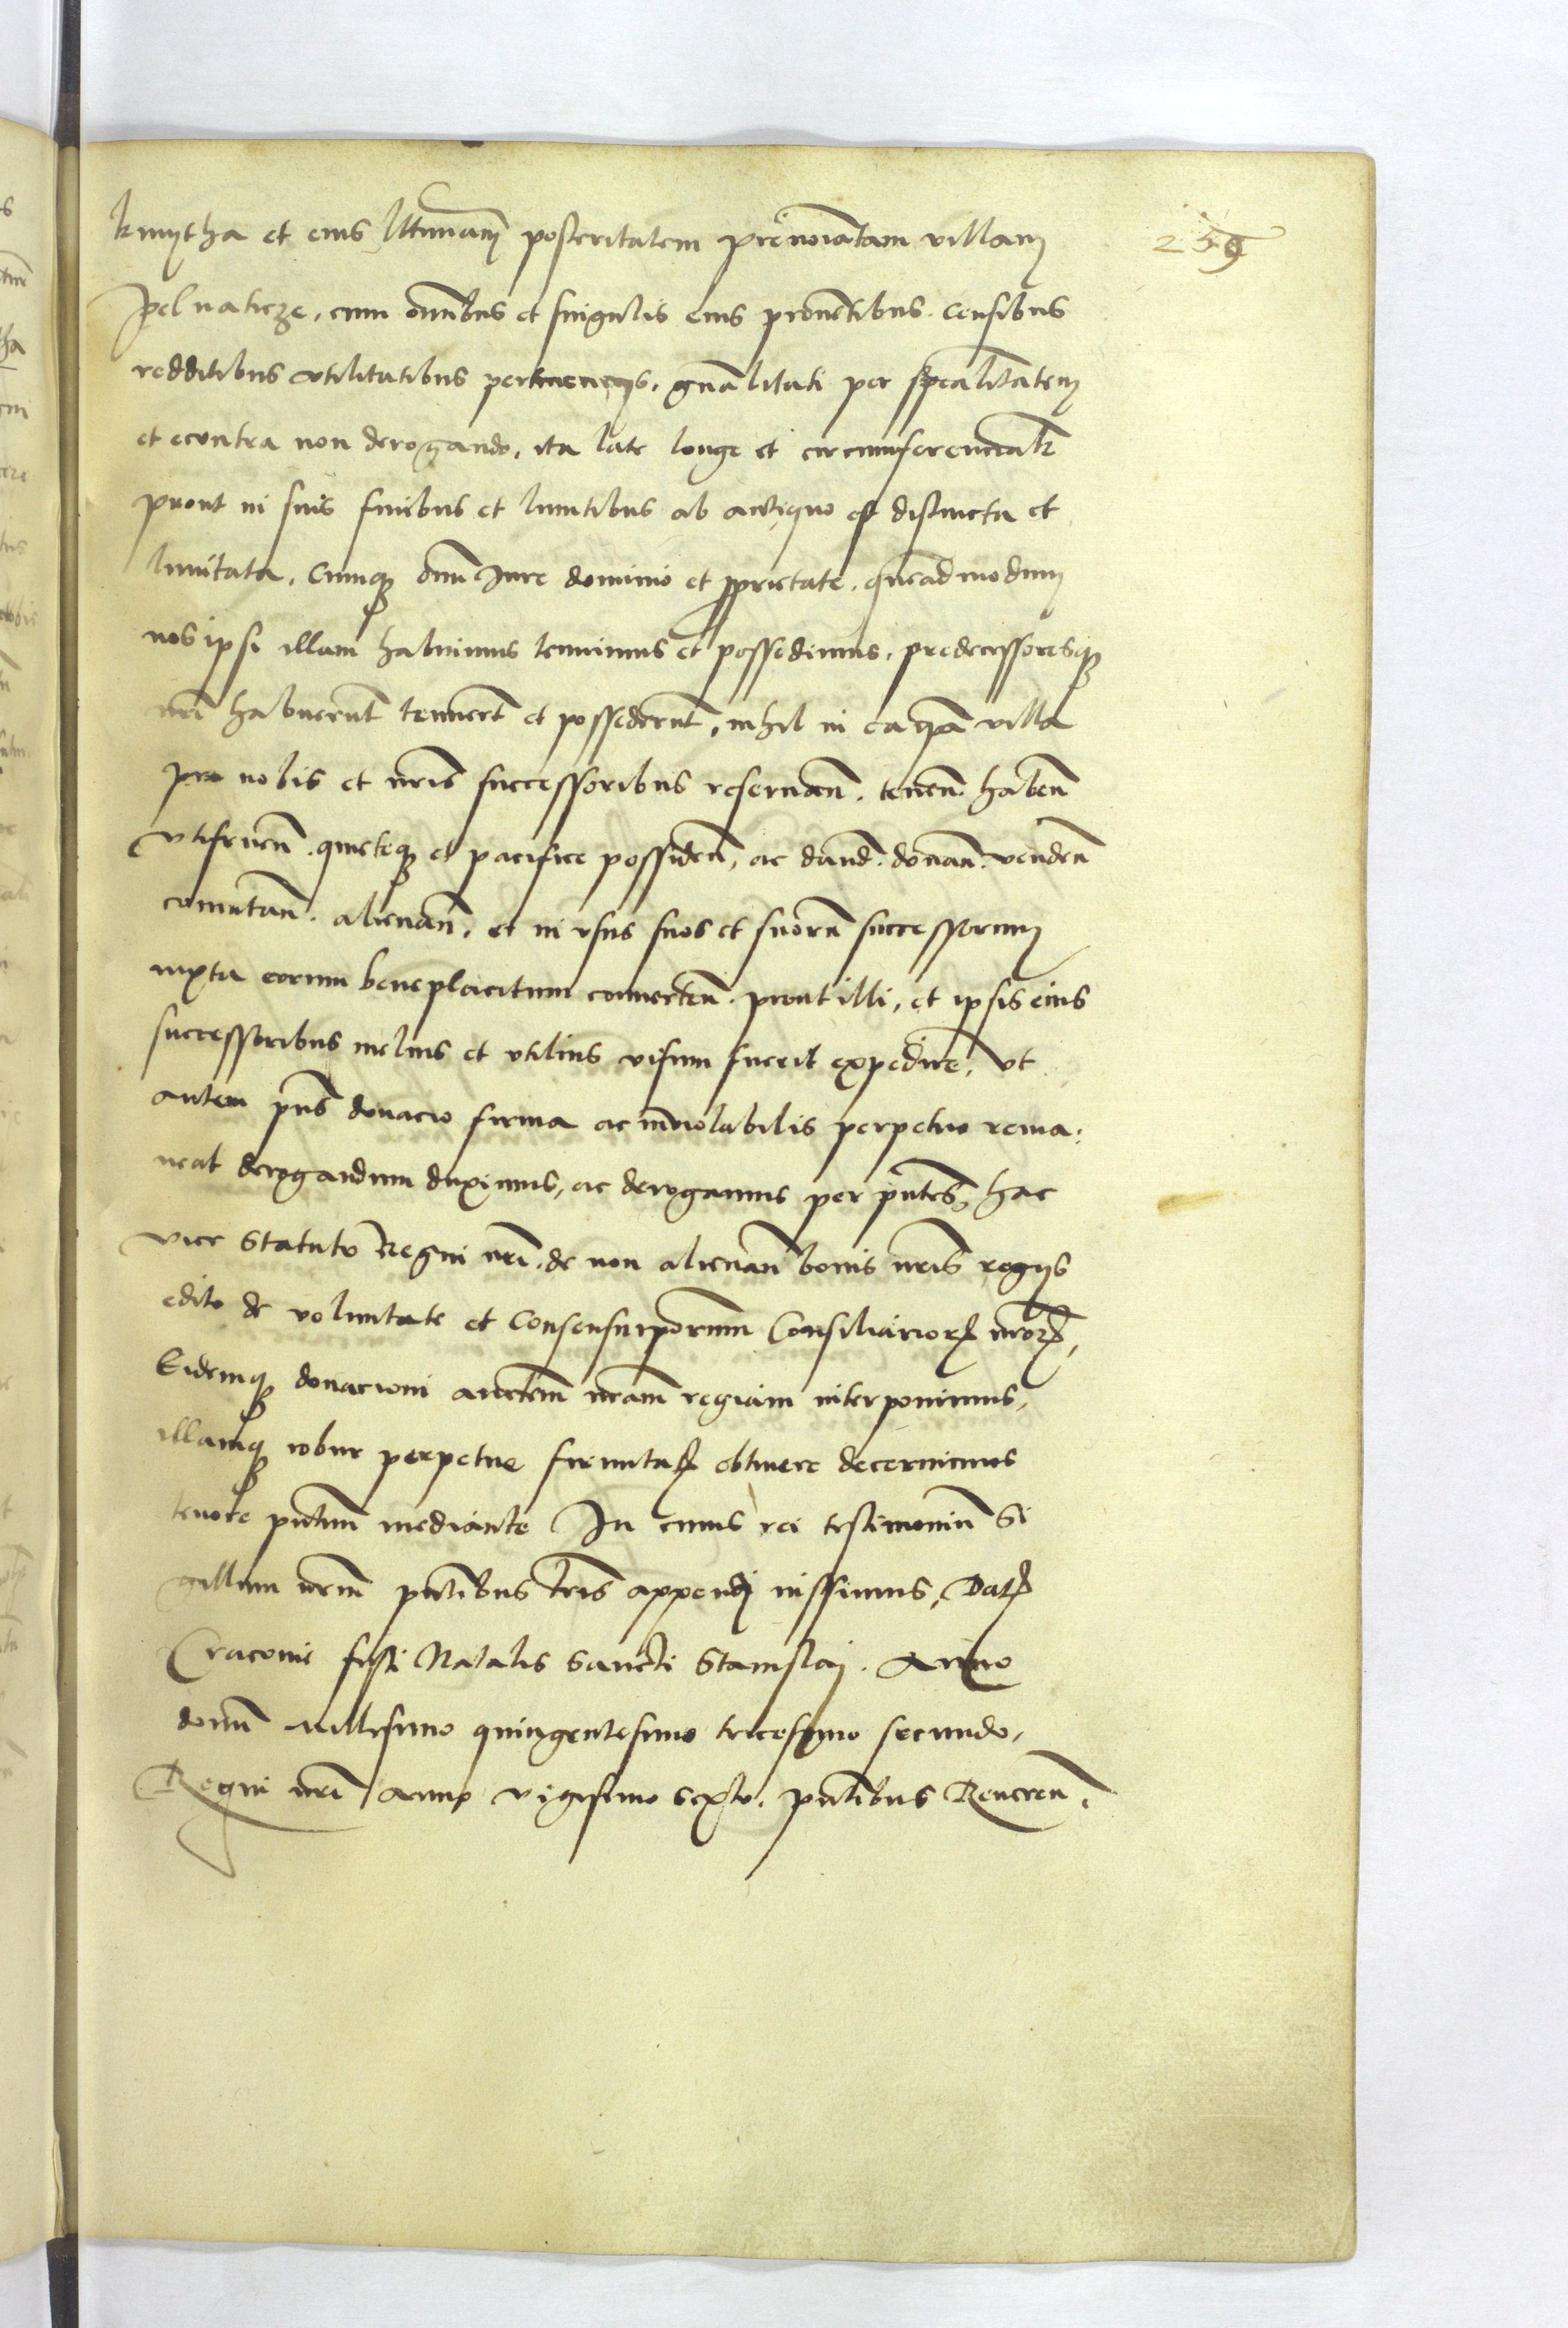 kmytha et eius l͞ttimam posteritatem prenoiatam villam
259
Pelnaticze, cum omibus et singulis eius prouentibus. censibus
redditibus vtilitatibus pertinencijs. gnalitati per specalitatem
et econtra non derogando, ita late longe et circumferencialr
prout in suis finibus et limitibus ab antiquo est distincta et
limitata. Cumq omi Iure dominio et pprietate. quemadmodum
nos ipsi illam habuimus tenuimus et possedimus, predecessoresq
nri habuerunt tenuert et possederunt, nihil in ea ipa villa
pro nobis et nris successoribus reseruan. tenen. haben
vtifruen. quieteq et pacifice possiden, ac dand. donan. venden
comutan. alienan. et in vsus suos et suoru successorum
iuxta eorum beneplacitum conuerten. prout illi, et ipsis eius
successoribus melius et vtilius visum fuerit expedire, Vt
autem pns donacio firma ac inuiolabilis perpetuo rema:
neat derogandum duximus, ac derogamus per pntes, hac
vice Statuto Regni nri. de non alienan bonis nris regijs
edito de voluntate et Consensu ipsorum Consiliarior nror,
Eidemq donacioni auctem nram regiam interponimus,
illamq robur perpetue firmitat obtinere decernimus
tenore pntium mediante In cuius rei testimoniu Si
gillum nrum pntibus lris appendi iussimus, Dat
Cracouie festi Natalis Sancti Stanislai. Anno
domi millesimo quingentesimo tricesimo secundo,
Regni nri Anno vigesimo sexto. pntibus Reueren.